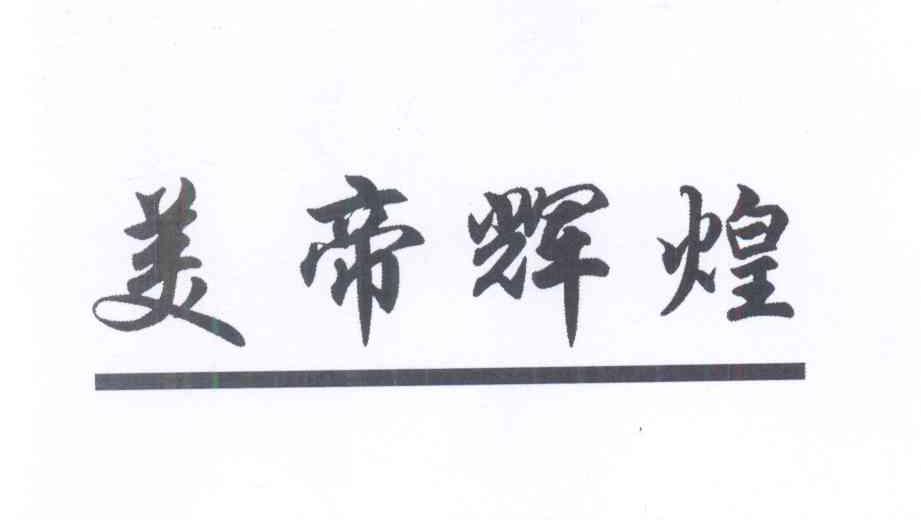 美帝辉煌